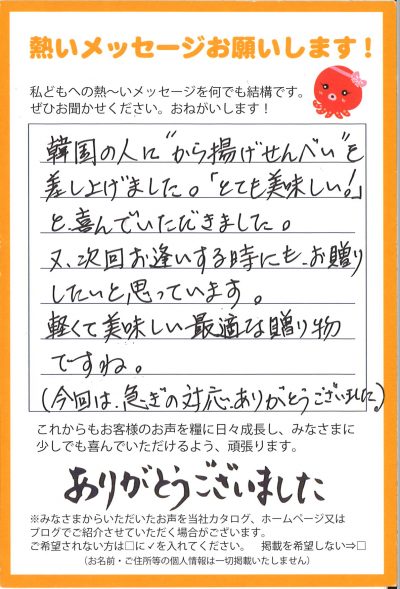 熱いメッセージお願いします!
私どもへの熱〜いメッセージを何でも結構です。
ぜひお聞かせください。おねがいします!
韓国の人に"から揚げせんべい"も
差し上げました。「とても美味しい!」
と喜んでいただきました。
又、次回お逢いする時にも、お贈り
したいと思っています。
軽くて美味しい最適な贈り物
ですね。
(今回は、急ぎの対応、ありがとうございました。)
これからもお客様のお声を糧に日々成長し、みなさまに
少しでも喜んでいただけるよう、頑張ります。
ありがとうございました
※みなさまからいただいたお声を当社カタログ、ホームページ又は
ブログでご紹介させていただく場合がございます。
ご希望されない方は□に✓を入れてください。 掲載を希望しない⇒□
(お名前・ご住所等の個人情報は一切掲載いたしません)